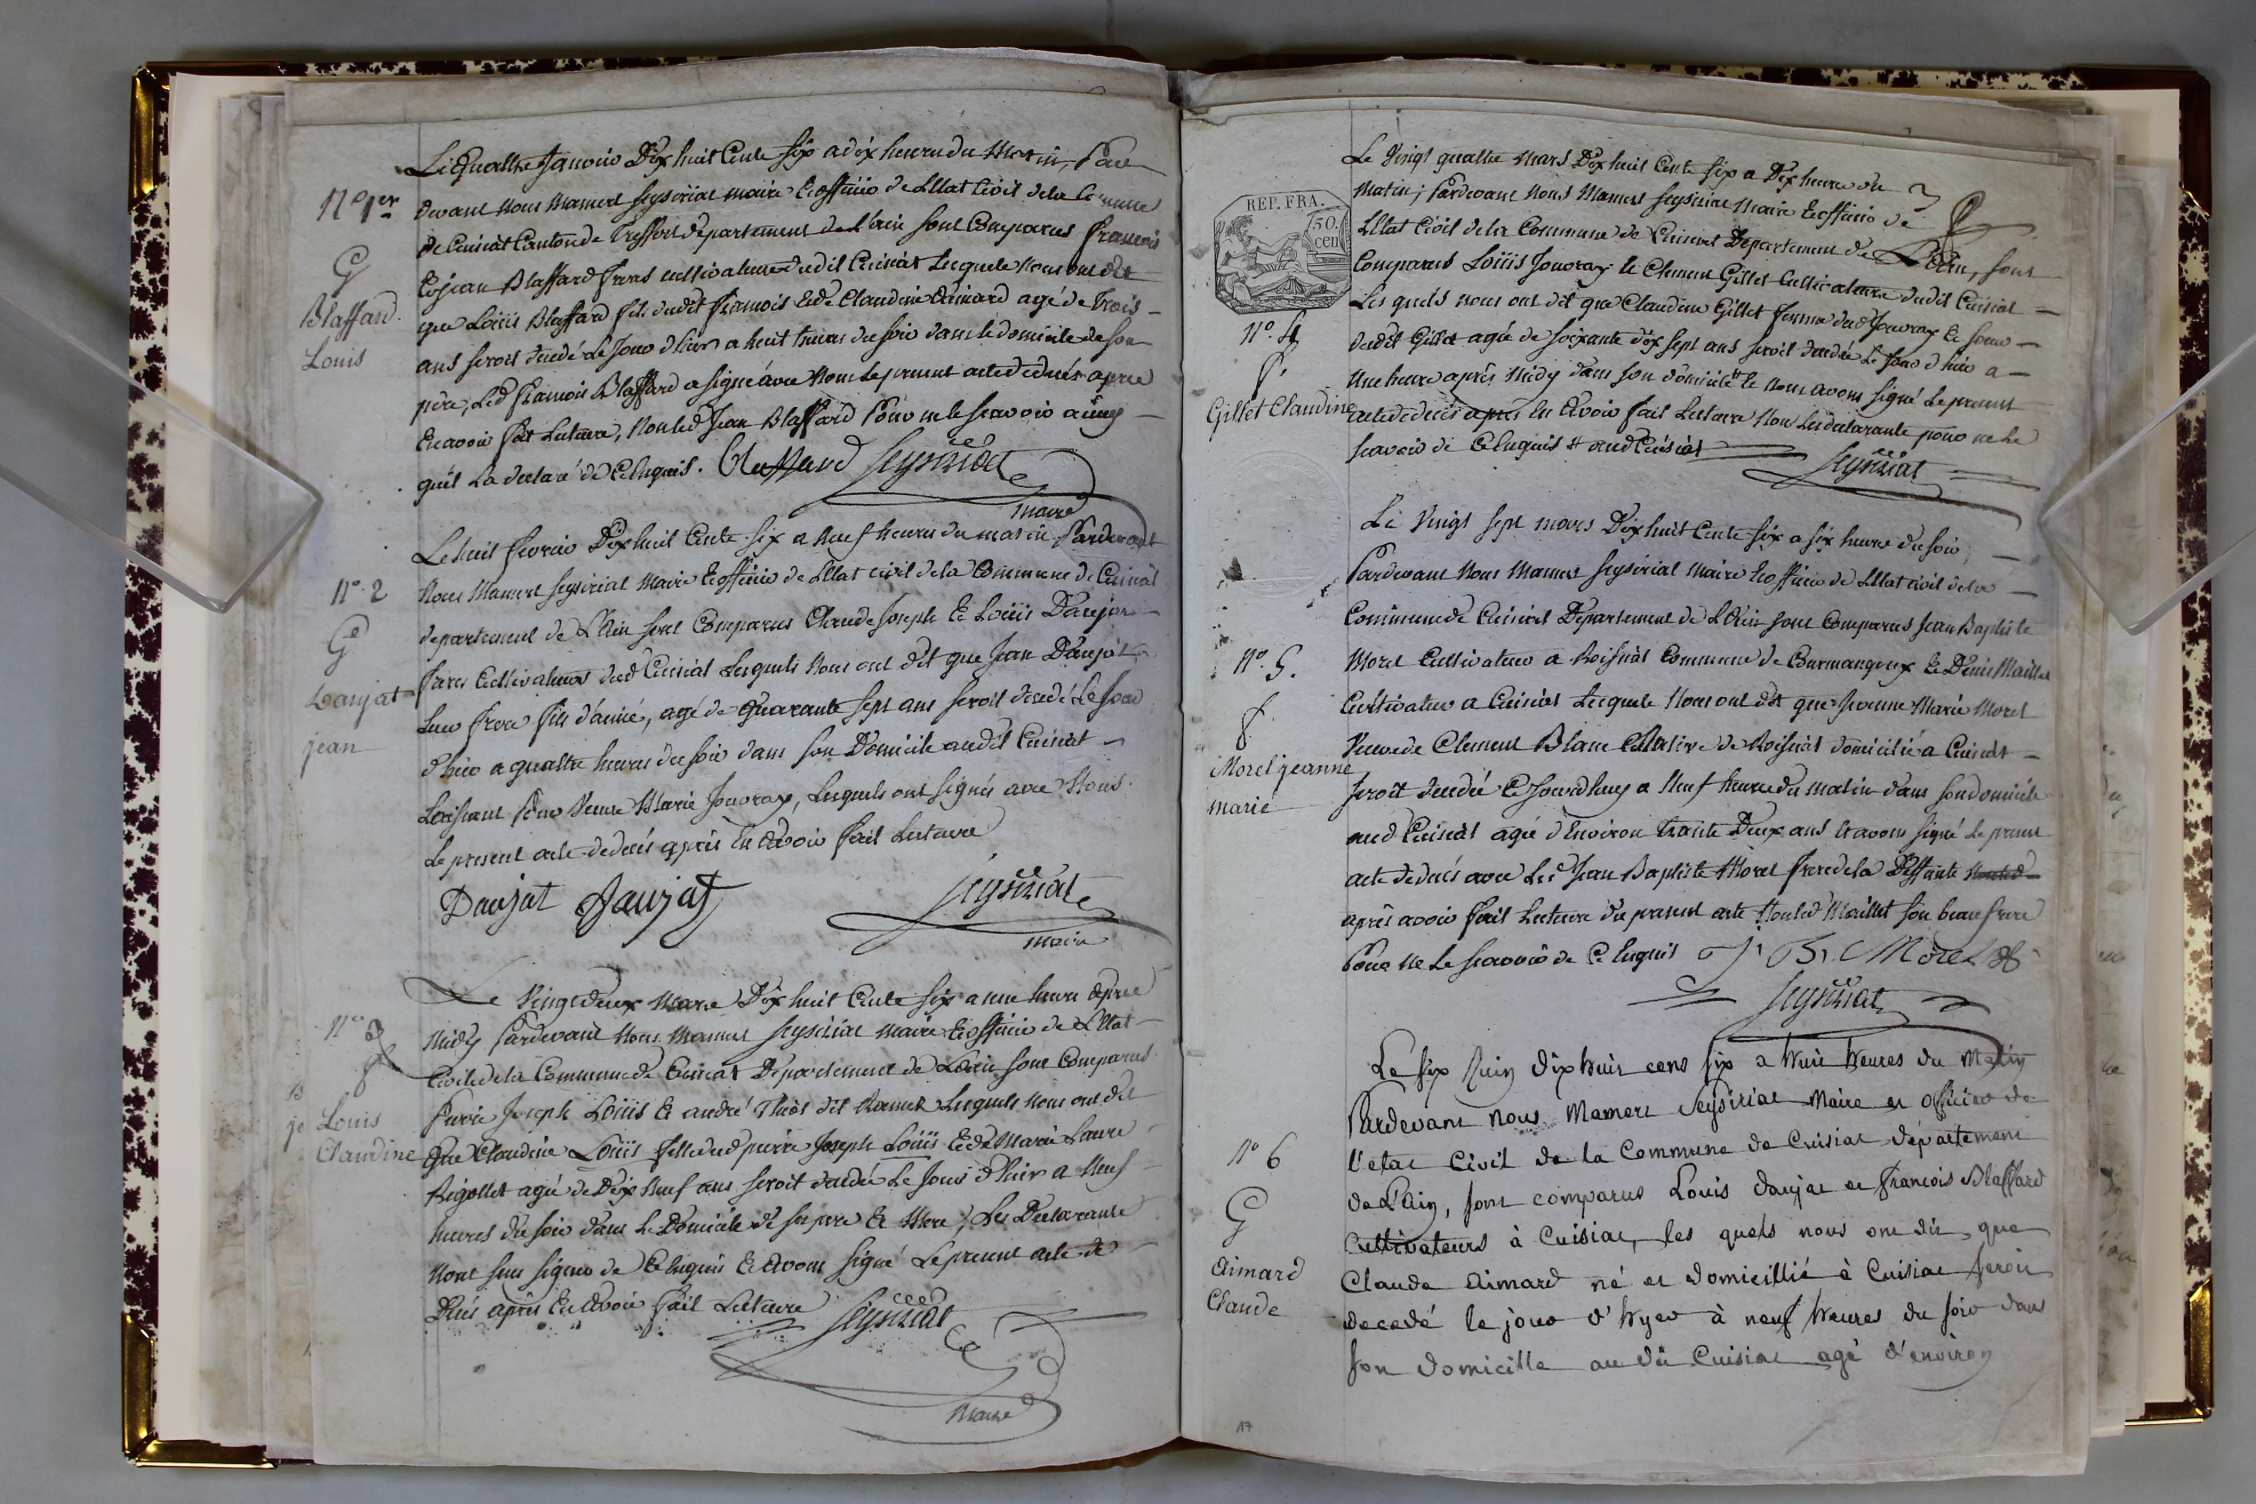 Le Quattre Janvier Dix huit Cents Six a dix heures du Matin, Par
N° 1er
devant Nous Mamert Seysiriat maire & officier de L'Etat Civil de la Commune
de Cuisiat Canton de Treffort departement de L'ain sont Comparus francois
G
& Jean Blaffard freres cultivateurs dudit Cuisiat Lesquels Nous ont dit
Blaffard
que Loüis Blaffard fils dudit francois & de Claudine Aimard agé de Trois
Louis
ans seroit decedé Le Jour d'hier a huit heures du soir dans le domicile de son
père, Led francois Blaffard a signé avec Nous Le present acte de decés apres
En avoir fait Lecture, Non led Jean Blaffard Pour ne le scavoir ainsy
qu'il La declaré de Ce Enquis. Blaffard Seysiriat
maire
Le huit fevrier Dix huit Cents Six a Neuf heures du matin Pardevant
N° 2
Nous Mamert Seysiriat Maire & officier de L'Etat civil de la Commune de Cuisiat
departement de L'Ain sont Comparus Claude Joseph & Loüis Daujat
G
freres Cultivateurs dud Cuisiat Lesquels Nous ont dit que Jean Daujat
Daujat
Leur frere fils d'aimé, agé de Quarante sept ans seroit decedé Le Jour
jean
d'hier a quattre heures du soir dans son Domicile audit Cuisiat
Laissant Pour Veuve Marie Jouvray, Lesquels ont signés avec Nous
Le present acte de decés après En avoir fait Lecture
Daujat Daujat Seysiriat
maire
Le Vingt deux Mars Dix huit Cents Six a une heure après
N° 3
Midy Pardevant Nous Mamert Seysiriat maire & officier de L'Etat
f
Civil de la Commune de Cuisiat Département de L'ain sont Comparus
Pierre Joseph Loüis & andré Lesquels nous ont dit
Louis
Claudine
Que Claudine Loüis fille dud pierre Joseph Loüis & de Marie Laure
Rigollet agée de Dix Neuf ans seroit decedée Le Jour d'hier a Neuf
heures du soir dans Le Domicile de ses pere & Mere, Les Declarants
Nont seu signer de Ce Enquis & avons signé Le present acte de
Decés après En avoir fait Lecture Seysiriat
Maire
Le Vingt quattre Mars Dix huit Cents Six a Dix heures du
Matin, Pardevant Nous Mamert Seysiriat Maire & officier de
REP. FRA.
50. cen
L'Etat Civil de la Commune de Cuisiat Departement de L'Ain, sont
Comparus Loüis Jouvray & Clement Gillet Cultivateurs dudit Cuisiat
Les quels nous ont dit que Claudine Gillet femme dud Jouvray & soeur
N° 4
dudit Gillet agée de soixante dix sept ans seroit decedée Le Jour d'hier a
f.
Une heure après Midy dans son domicile & nous avons signé Le present
Gillet Claudine
acte de decés après En avoir fait Lecture Non Les declarants pour ne Le
scavoir de Ce Enquis # aud Cuisiat
Seysiriat
Le Vingt sept mars Dix huit Cents Six a six heures du soir,
Pardevant Nous Mamert Seysiriat Maire & officier de L'Etat civil de la
Commune de Cuisiat Departement de L'Ain sont Comparus Jean Baptiste
N° 5.
Morel Cultivateur a Roisiat Commune de Courmangoux & Denis Maillet
Cultivateur a Cuisiat Lesquels Nous ont dit que Jeanne Marie Morel
f.
Veuve de Clement Blanc Native de Roisiat domiciliée a Cuisiat
Morel jeanne
marie
seroit decedée Ce Jourdhuy a Neuf heures du matin dans son domicile
aud Cuisiat agée d'Environ trante Deux ans & avons signé Le present
acte de decés avec Led Jean Baptiste Morel frere de la Deffunte
après avoir fait Lecture du present acte Non led Maillet son beau frere
Pour Ne Le scavoir de Ce Enquis J. B. Morel
Seysiriat
Le six Juin dix huit cens six a huit heures du Matin
Pardevant nous Mamert Seysiriat Maire et officier de
N° 6
l'etat Civil de la Commune de Cuisiat département
de L'Ain, sont comparus Louis daujat et francois Blaffard
G
Cultivateurs à Cuisiat, les quels nous ont dit que
Aimard
Claude Aimard né et domicillié à Cuisiat seroit
Claude
decedé le jour d'hyer à neuf heures du soir dans
son domicille au dit Cuisiat agé d'environ
17